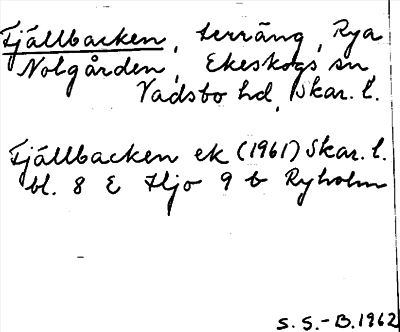 Fjällbacken, terräng, Rya
Nolgården, Ekeskogs sn
Vadsbo hd, Skar. l.
Fjällbacken ek (1961) Skar. l.
bl. 8 E Hjo 9 b Ryholm
S. S. - B. 1962